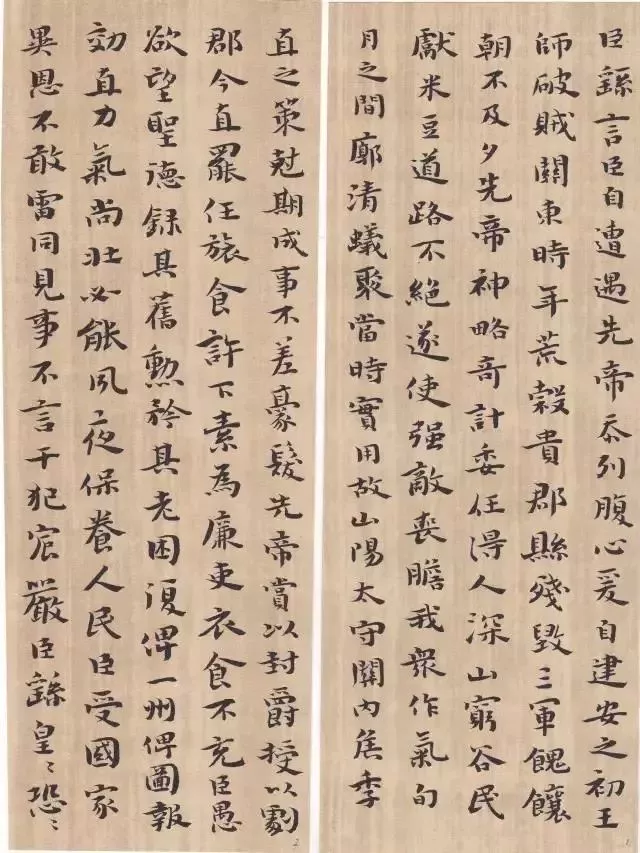 臣繇言臣自遭遇先帝忝列腹心爰自建安之初王
師破賊關東時年荒穀貴郡縣殘毀三軍餽饟
朝不及夕先帝神略奇計委任得人深山窮谷民
獻米豆道路不絕遂使强敵喪膽我衆作氣旬
月之間廓清蟻聚當時實用故山陽太守關內矦季
直之策尅期成事不差豪髮先帝賞以封爵授以劇
郡今直罷任旅食許下素為廉吏衣食不充臣愚
欲望聖德録其舊勳矜其老困復俾一州俾圖報
効直力氣尚壯必能夙夜保養人民臣受國家
異恩不敢雷同見事不言干犯宸嚴臣繇皇〻恐〻